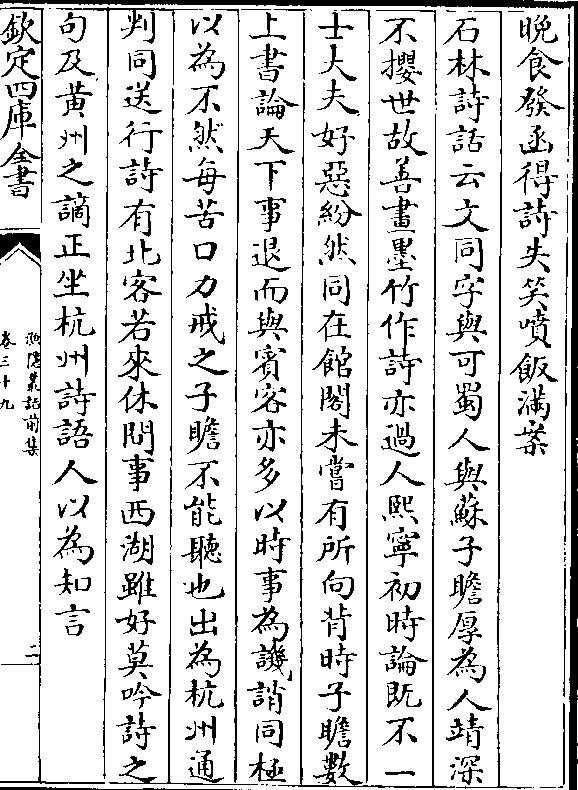 晚食發函得詩失笑噴飯滿案
石林詩話云文同字與可蜀人與蘇子瞻厚為人靖深
不攖世故善畫墨竹作詩亦過人熙寧初時論既不一
士大夫好惡紛然同在館閣未嘗有所向背時子瞻數
上書論天下事退而與賓客亦多以時事為譏誚同極
以為不然每苦口力戒之子瞻不能聽也出為杭州通
判同送行詩有北客若來休問事西湖雖好莫吟詩之
句及黃州之謫正坐杭州詩語人以為知言
欽定四庫全書
漁隱叢話前集
卷三十九
二